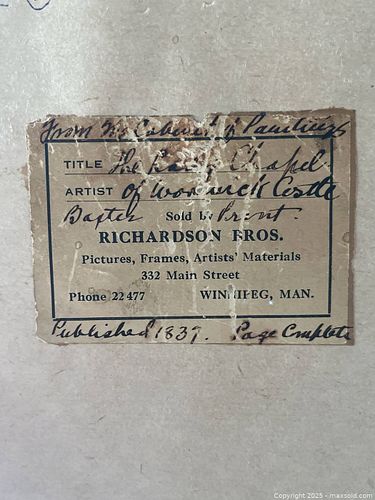 From the Cabinet of Paintings
TITLE The Lady Chapel
ARTIST of Warwick Castle
Baxter Sold by Print.
RICHARDSON BROS.
Pictures, Frames, Artists' Materials
332 Main Street
Phone 22 477 WINNIPEG, MAN.
Published 1837. Page Complete
Copyright 2025 - maxsold.com